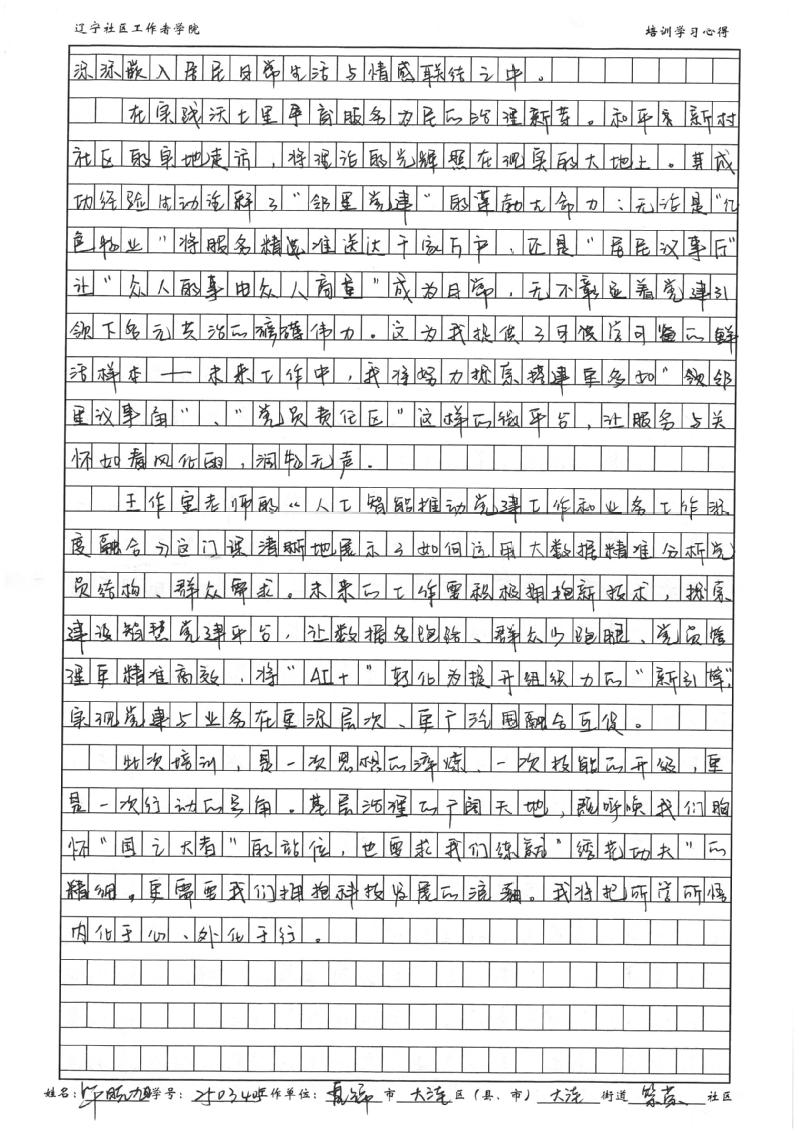 辽宁社区工作者学院 培训学习心得
深深嵌入居民日常生活与情感联结之中。
在实践沃土里孕育服务为民的治理新芽。和平亮新村
社区的实地走访，将理论的光辉照在现实的大地上。其成
功经验生动诠释了“邻里党建”的蓬勃大命力：无论是“红
色物业”将服务精选准送达千家万户，还是“居民议事厅”
让“众人的事由众人商量”成为日常，无不彰显着党建引
领下多元共治的磅礴伟力。这为我提供了可供学可鉴的鲜
活样本——未来工作中，我将努力探索搭建更多如“领邻
里议事角”、“党员责任区”这样的微平台，让服务与关
怀如春风化雨，润物无声。
王作宝老师的“人工智能推动党建工作和业务工作深
度融合分这门课清晰地展示了如何运用大数据精准分析党
员结构、群众需求。未来的工作需积极拥抱新技术，探索
建设智慧党建平台，让数据多跑路、群众少跑腿、党员管
理更精准高效，将“AI+”转化为提升组织力的“新引擎”，
实现党建与业务在更深层次、更广范围融合互促。
此次培训，是一次思想的淬炼、一次技能的升级，更
是一次行动的号角。基层治理的广阔天地，既呼唤我们胸
怀“国之大者”的站位，也要求我们练就“绣花功夫”的
精细，更需要我们拥抱科技发展的浪潮。我将把所学所悟
内化于心、外化于行。
姓名： 学号：250340 工作单位：盘锦市 大洼区（县、市） 大洼 街道 社区